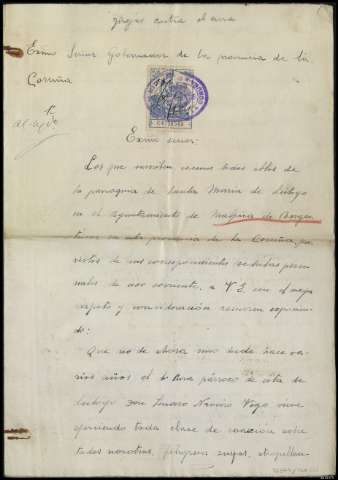 quejas contra el cura
Exmo Señor Gobernador de la provincia de la
Coruña
Exmo señor:
Los que suscriben vecinos todos ellos de
la parroquia de Santa Maria de
en el Ayuntamiento de
en esta provincia de la Coruña, pro
vistos de sus correspondientes cedulas perso
nales de uso corriente, a V. E. con el mayor
respeto y consideración recurren exponien
do:
Que no de ahora sino desde hace va
rios años el Sr Cura párroco de esta de
don Naveiro Vigo viene
ejerciendo toda clase de coacción sobre
todos nosotros, feligreses suyos, atropellan